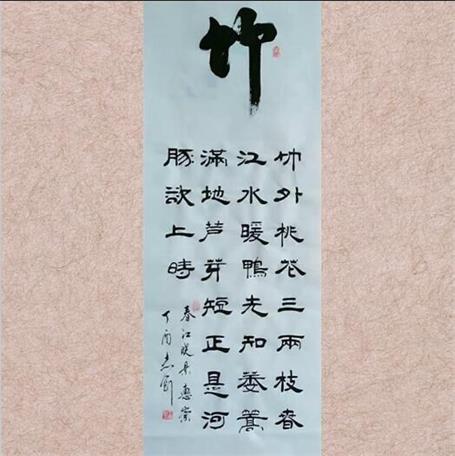 竹
竹外桃花三兩枝春
江水暖鴨先知蒌蒿
滿地芦芽短正是河
豚欲上時
春江晓景惠崇
丁酉